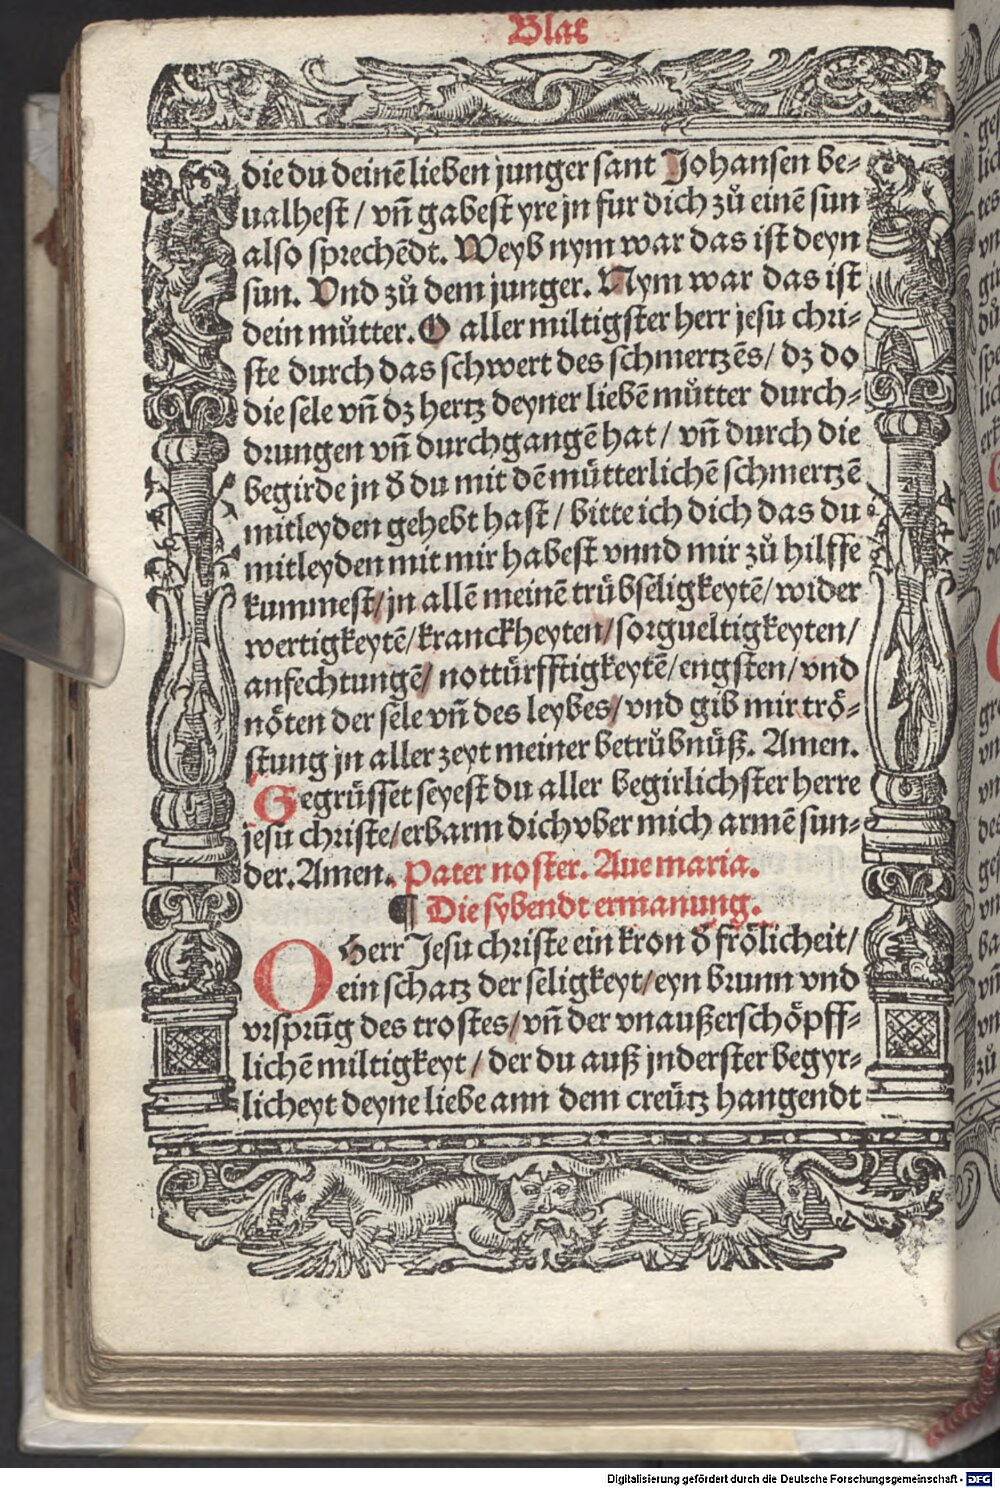 Blat
die du deinē lieben junger sant Johansen be-
ualhest / vn̄ gabest yre jn fur dich zů einē sun
also sprechēdt. Weyb nym war das ist deyn
sun. Vnd zů dem junger. Nym war das ist
dein můtter. O aller miltigster herr jesu chri-
ste durch das schwert des schmertzēs / dz do
die sele vn̄ dz hertz deyner liebē můtter durch-
drungen vn̄ durchgangē hat / vn̄ durch die
begirde jn d̄ du mit dē mütterlichē schmertzē
mitleyden gehebt hast / bitte ich dich das du
mitleyden mit mir habest vnnd mir zů hilffe
kummest/jn allē meinē trübseligkeytē/wider
wertigkeytē/kranckheyten/sorgueltigkeyten/
anfechtungē/ nottürfftigkeytē/engsten/vnd
nöten der sele vn̄ des leybes/vnd gib mir trö-
stung jn aller zeyt meiner betrůbnüß. Amen.
Gegrüsset seyest du aller begirlichster herre
jesu christe/erbarm dich vber mich armē sun-
der. Amen. Pater noster. Aue maria.
¶ Die sybendt ermanung.
O Herr Jesu christe ein kron d̄ frölicheit/
ein schatz der seligkeyt/eyn brunn vnd
vrsprūg des trostes/vn̄ der vnaußerschöpff-
lichē miltigkeyt / der du auß jnderster begyr-
licheyt deyne liebe ann dem creütz hangendt
Digitalisierung gefördert durch die Deutsche Forschungsgemeinschaft - DFG